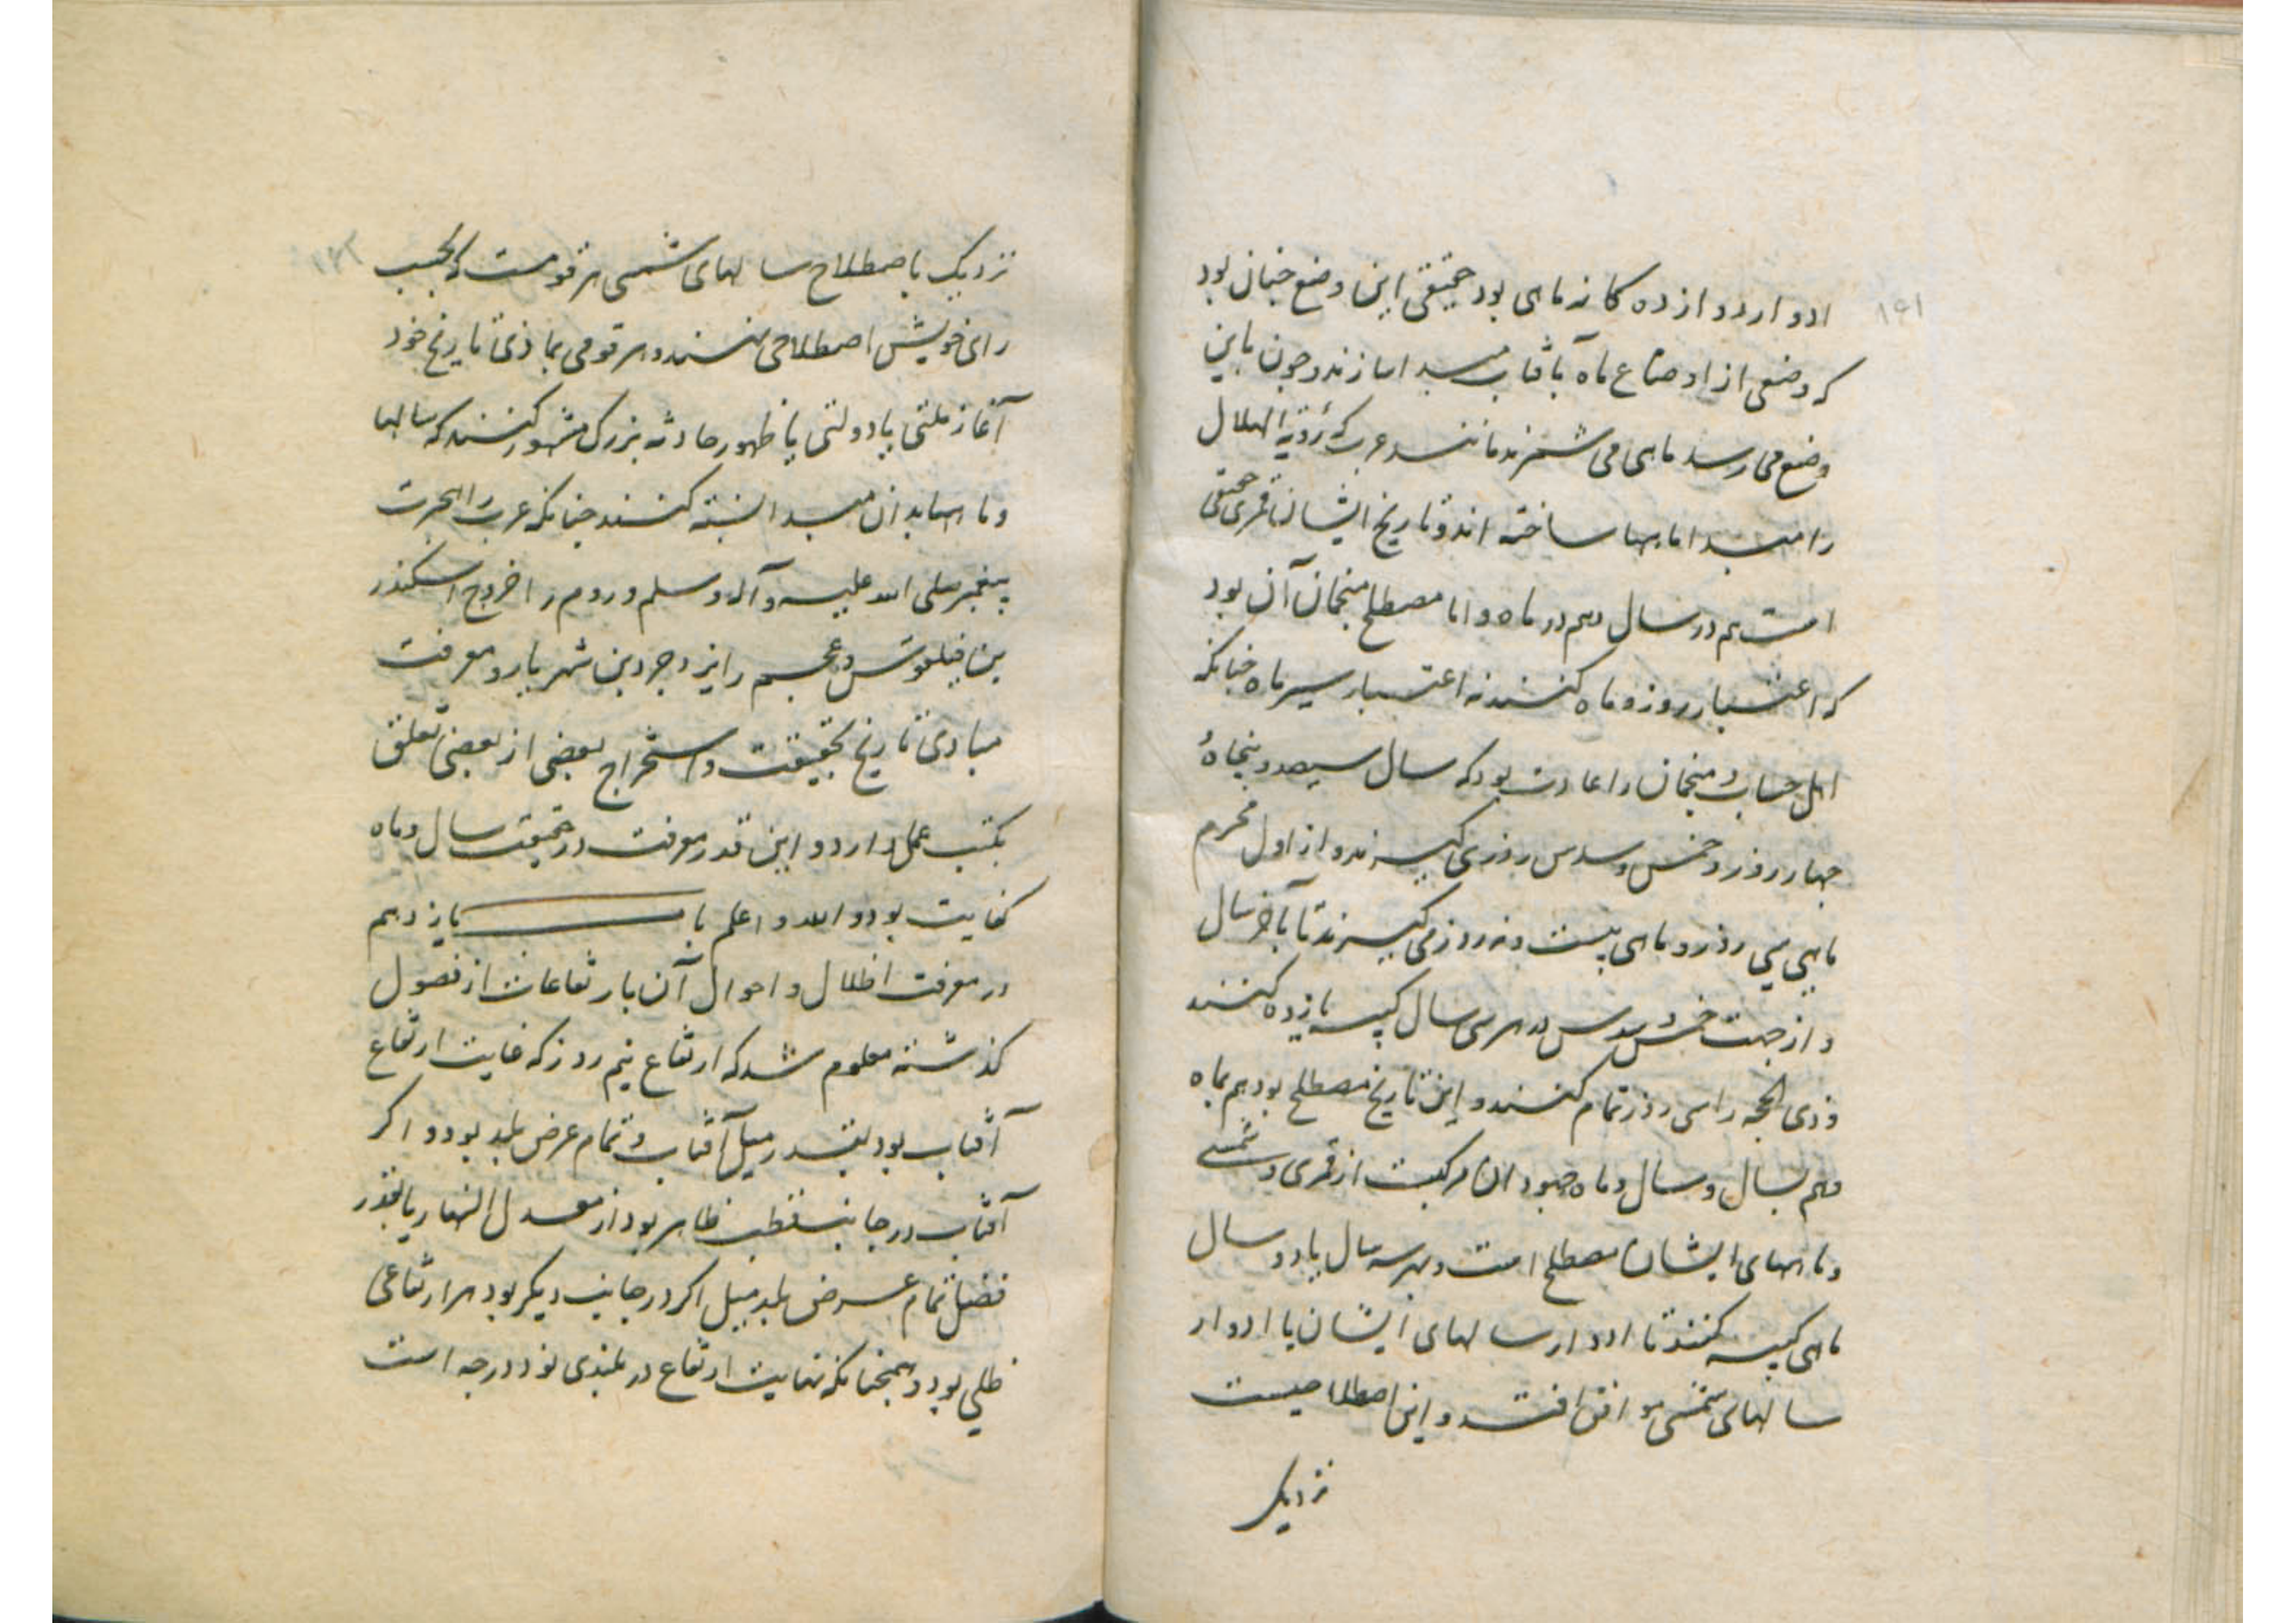 ادوار دوازده کانه ماهی بود حقیقی این وضع چنان بود
که وضعی از اوضاع ماه بآفتاب مبدا سازند و چون باین
وضع می رسد ماهی می شمرند مانند عرب که رؤیة الهلال
را مبدا ماهها ساخته اند و تاریخ ایشان قمری حقیقی
است هم در سال و هم در ماه و اما مصطلح منجمان آن بود
که اعتبار روز و ماه کنند نه اعتبار سیر ماه چنانکه
اهل حساب و منجمان را عادت بود که سال سیصد و پنجاه و
چهار روز و خمس و سدس روزی گیرند و از اول محرم
ماهی سی روز و ماهی بیست و نه روز می گیرند تا بآخر سال
و از جهت خمس و سدس در هر سی سال کبیسه یازده کنند
و ذی الحجه را سی روز تمام کنند و این تاریخ مصطلح بود هم بماه
و هم بسال و سال و ماه جهودان مرکبست از قمری و شمسی
و ماههای ایشان مصطلح است و بهر سه سال یا دو سال
ماهی کبیسه کنند تا ادوار سالهای ایشان با ادوار
سالهای شمسی موافق افتد و این اصطلاحیست
نزدیک
۱۶۱
نزدیک باصطلاح سالهای شمسی هر قومست که بحسب
رای خویش اصطلاحی نهند و هر قومی بماذی تاریخ خود
آغاز ملتی یا دولتی یا ظهور حادثه بزرک مشهور کنند که سالها
و ماهها بدان مبدا نسبته کنند چنانکه عرب را هجرت
پیغمبر صلی الله علیه و آله و سلم و روم را خروج اسکندر
بن فیلقوس و عجم را یزدجرد بن شهریار و معرفت
مبادی تاریخ بحقیقت و استخراج بعضی از بعضی تعلق
بکتب عمل دارد و این قدر معرفت در حقیقت سال و ماه
کفایت بود و الله و اعلم باب یازدهم
در معرفت اظلال و احوال آن بارتفاعات از فصول
کذشته معلوم شد که ارتفاع نیم روز که غایت ارتفاع
آفتاب بود بقدر میل آفتاب و تمام عرض بلد بود و اکر
آفتاب در جانب قطب ظاهر بود از معدل النهار یا بقدر
فضل تمام عرض بلد بمیل اکر در جانب دیکر بود هر ارتفاعی
ظلی بود و همچنانکه نهایت ارتفاع در بلندی نود درجه است